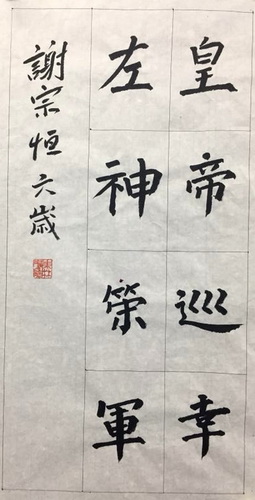 皇帝巡幸
左神策軍
謝宗恒六歲